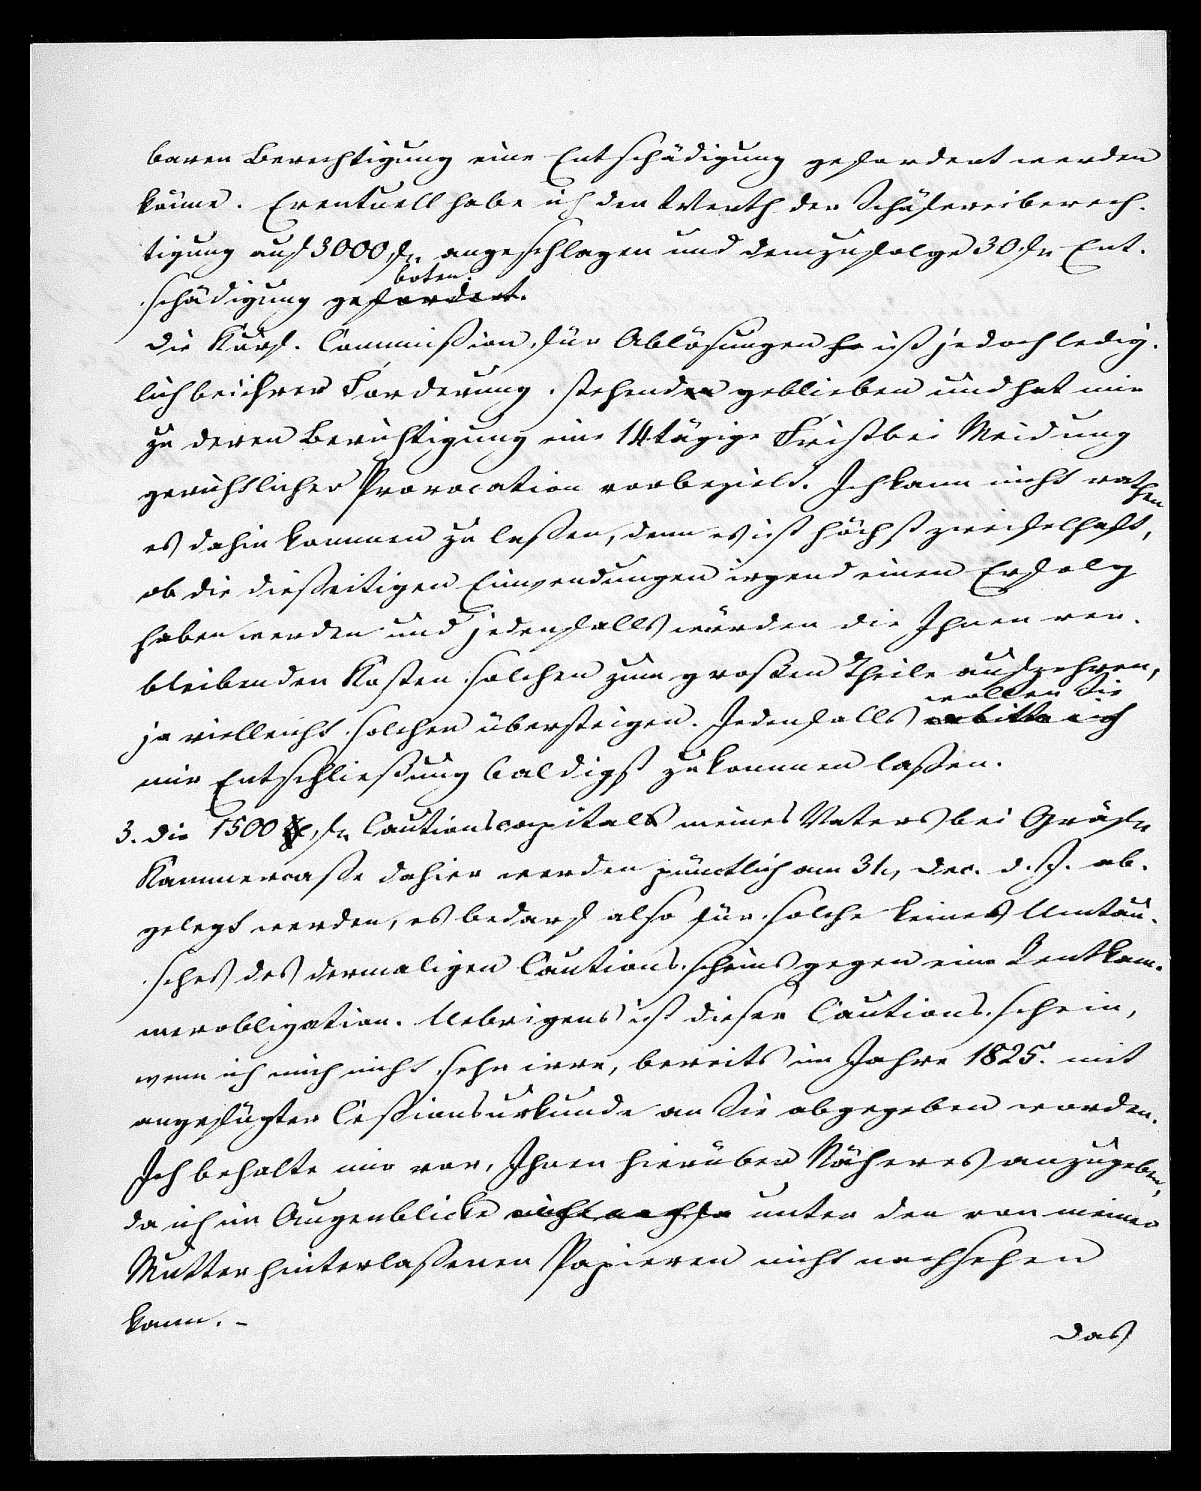 baren Berechtigung eine Entschädigung gefordert werden
könne. Eventuell habe ich den Werth der Schäfereiberech-
tigung auf 3000 fr angeschlagen und demzufolge 30 fr Ent-
boten.
schädigung gefordert.
Die Kurf. Commißion für Ablösungen ist jedoch ledig-
lich bei ihrer Forderung stehen geblieben und hat mir
zu deren Berichtigung eine 14tägige Frist bei Meidung
gerichtlicher Provocation vorbezielt. Ich kann nicht rathen
es dahin kommen zu laßen, denn es ist höchst zweifelhaft,
ob die dießeitigen Einwendungen irgend einen Erfolg
haben werden und jedenfalls würden die Ihnen ver-
bleibenden Kosten solchen zum großen Theile aufzehren,
wollen Sie
ja vielleicht solchen übersteigen. Jedenfalls erbitte ich
mir Entschließung baldigst zukommen laßen.
3. die 1500 fr Cautionscapitals meines Vaters bei Gräfl.
Kammercaße dahier werden pünctlich am 31., Dec. d. J. ab-
gelegt werden, es bedarf also für solche keines Umtau-
sches des dermaligen Cautionsscheins gegen eine Rentkam-
merobligation. Uebrigens ist dieser Cautionsschein,
wenn ich mich nicht sehr irre, bereits im Jahre 1825. mit
angefügter Ceßionsurkunde an Sie abgegeben worden.
Ich behalte mir vor, Ihnen hierüber Näheres anzugeben,
da ich im Augenblicke nicht nachse unter den von meiner
Mutter hinterlaßenen Papieren nicht nachsehen
kann. -
Das